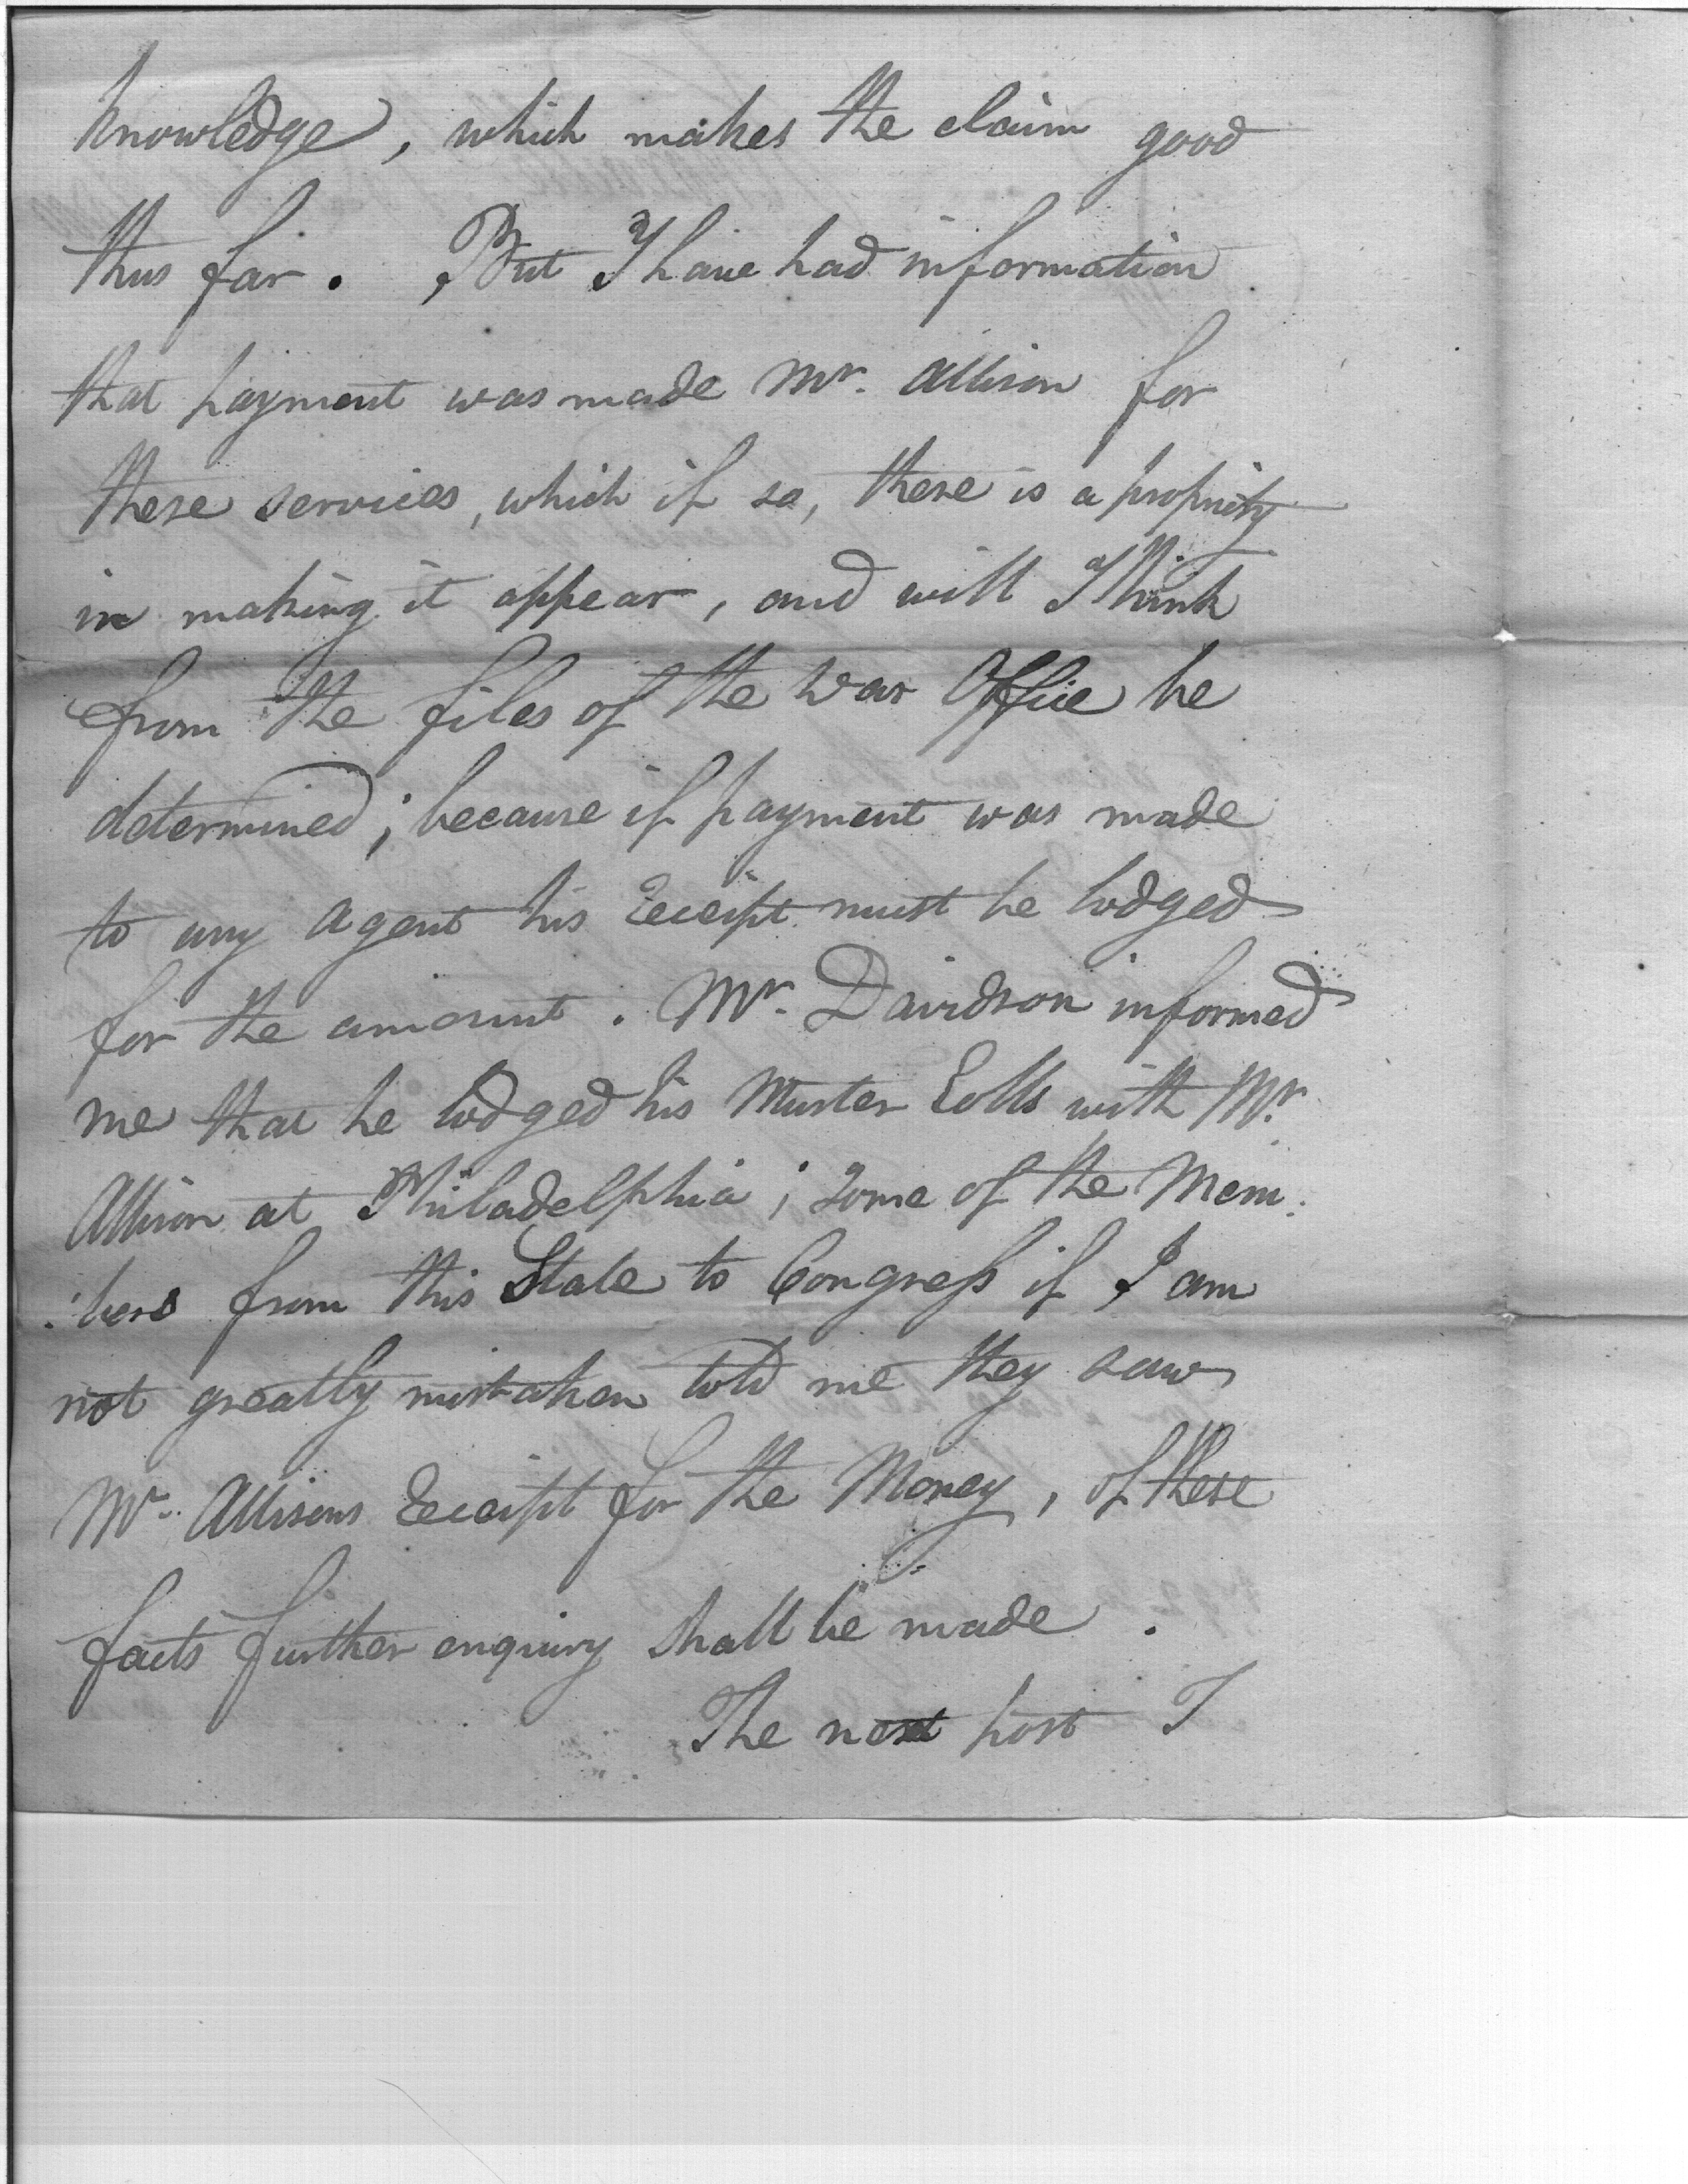 knowledge, which makes the claim good
thus far. But I have had information
that payment was made Mr. Allison for
these services, which if so, there is a propriety
in making it appear, and will I think
from the files of the War Office be
determined; because if payment was made
to any Agent his Receipt must be lodged
for the amount. Mr. Davidson informed
me that he lodged his Muster Rolls with Mr.
Allison at Philadelphia; some of the Mem:
:bers from this State to Congress if I am
not greatly mistaken told me they saw
Mr. Allisons Receipt for the Money, of these
facts further enquiry shall be made.
The next post I